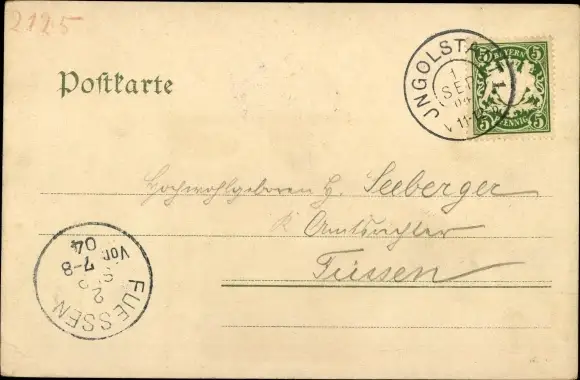 2125
Postkarte
JNGOLSTA
1
SEP
04
V 11-12
1
5 BAYERN 5
5 PFENNIG 5
Hochwohlgeboren H. Seeberger
K. Amtsrichter
Füssen
FUESSEN
2
SEP
Vor. 7-8
04